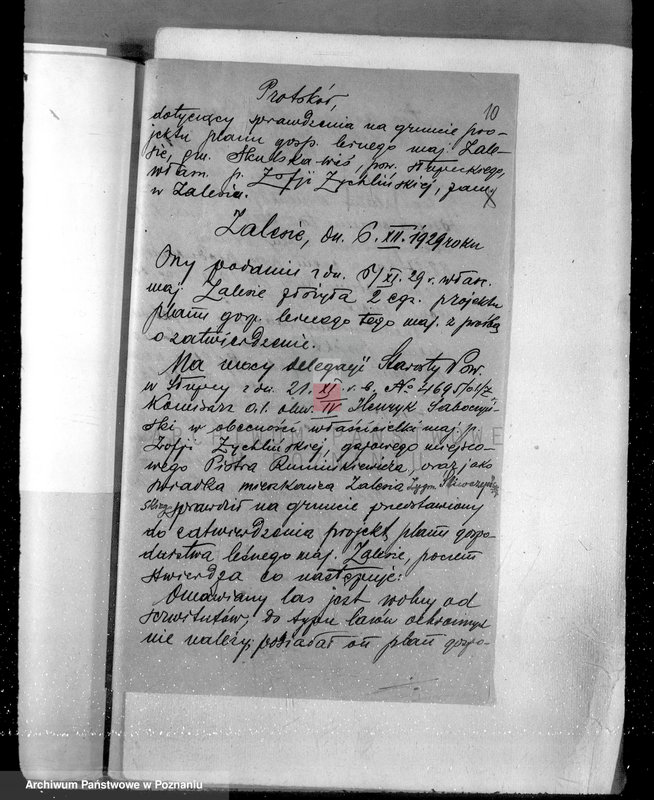 10
Protokół,
dotyczący sprawdzenia na gruncie pro-
jektu planu gosp. leśnego maj. Zale-
sie, gm. Skulska-wieś, pow. Słupeckiego,
własn. p. Zofji Zychlińskiej, zam.
w Zalesiu.
Zalesie, dn. 6.XII.1929 roku
Przy podaniu z dn. XI.29 r. właśc.
maj. Zalesie złożyła 2 egz. projektu
planu gosp. leśnego tego maj. z prośbą
o zatwierdzenie.
Na mocy delegacji Starosty Pow.
w Słupcy z dn. 21.XI r. b. No
Komisarz o.l. obw. IV Henryk
ski, w obecności właścicielki maj. p.
Zofji Zychlińskiej, gajowego miejsco-
wego Piotra oraz jako
świadka mieszkańca Zalesia Zygm.
sprawdził na gruncie przedstawiony
do zatwierdzenia projekt planu gospo-
darstwa leśnego maj. Zalesie, poczem
stwierdza co następuje:
Omawiany las jest wolny od
serwitutów, do typu lasów ochronnych
nie należy, posiadał on plan gospo-
Archiwum Państwowe w Poznaniu